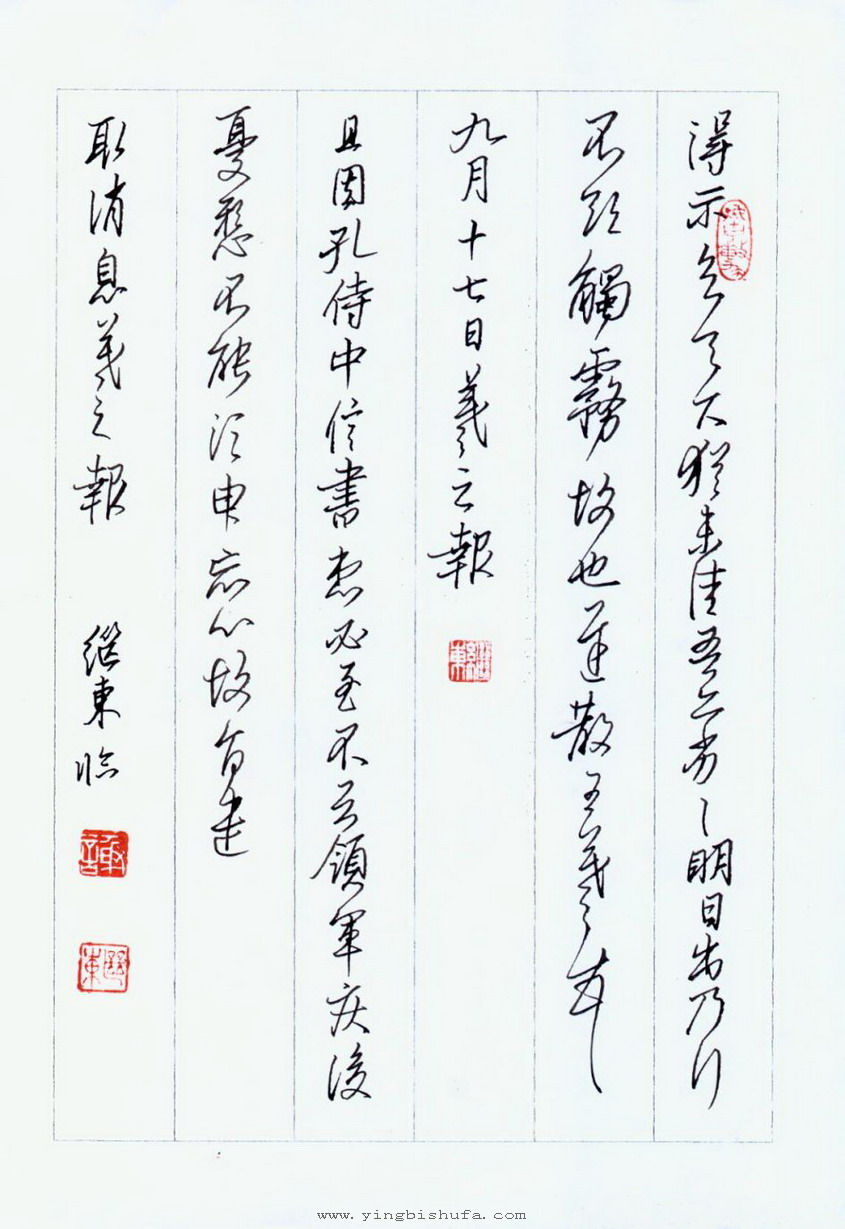 得示知足下猶未佳吾亦劣〻明日出乃行
不欲觸霧故也遲散王羲之頓首
九月十七日羲之報
繼東
且因孔侍中信書想必至不知領軍疾後
憂懸不能須臾忘心故旨遣
取消息羲之報 繼東臨
繼東
www.yingbishufa.com